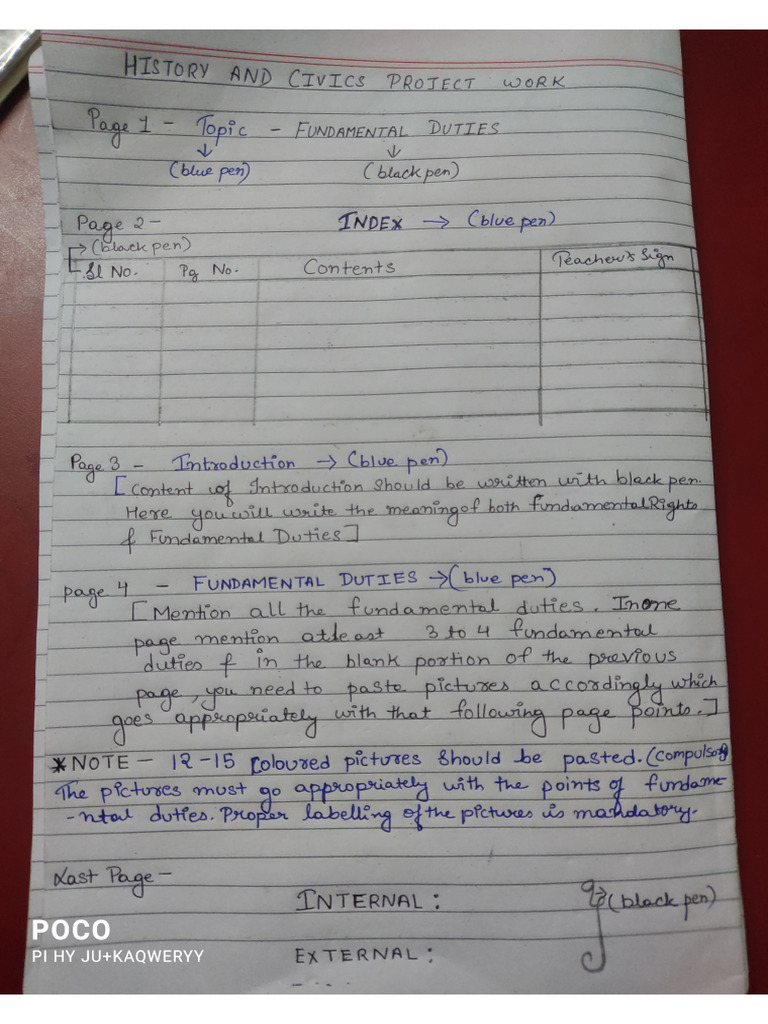 HISTORY AND CIVICS PROJECT WORK
Page 1 - Topic - FUNDAMENTAL DUTIES
(blue pen) (black pen)
Page 2 - INDEX → (blue pen)
→(black pen)
Sl No. Pg No. Contents Teacher's Sign
Page 3 - Introduction → (blue pen)
[Content of Introduction should be written with black pen.
Here you will write the meaning of both fundamental Rights
& Fundamental Duties]
page 4 - FUNDAMENTAL DUTIES →(blue pen)
[Mention all the fundamental duties. In one
page mention atleast 3 to 4 fundamental
duties & in the blank portion of the previous
page, you need to paste pictures accordingly which
goes appropriately with that following page points.]
*NOTE - 12-15 coloured pictures should be pasted. (compulsory)
The pictures must go appropriately with the points of fundame-
-ntal duties. Proper labelling of the pictures is mandatory.
Last Page -
INTERNAL: (black pen)
EXTERNAL:
POCO
PI HY JU+KAQWERYY